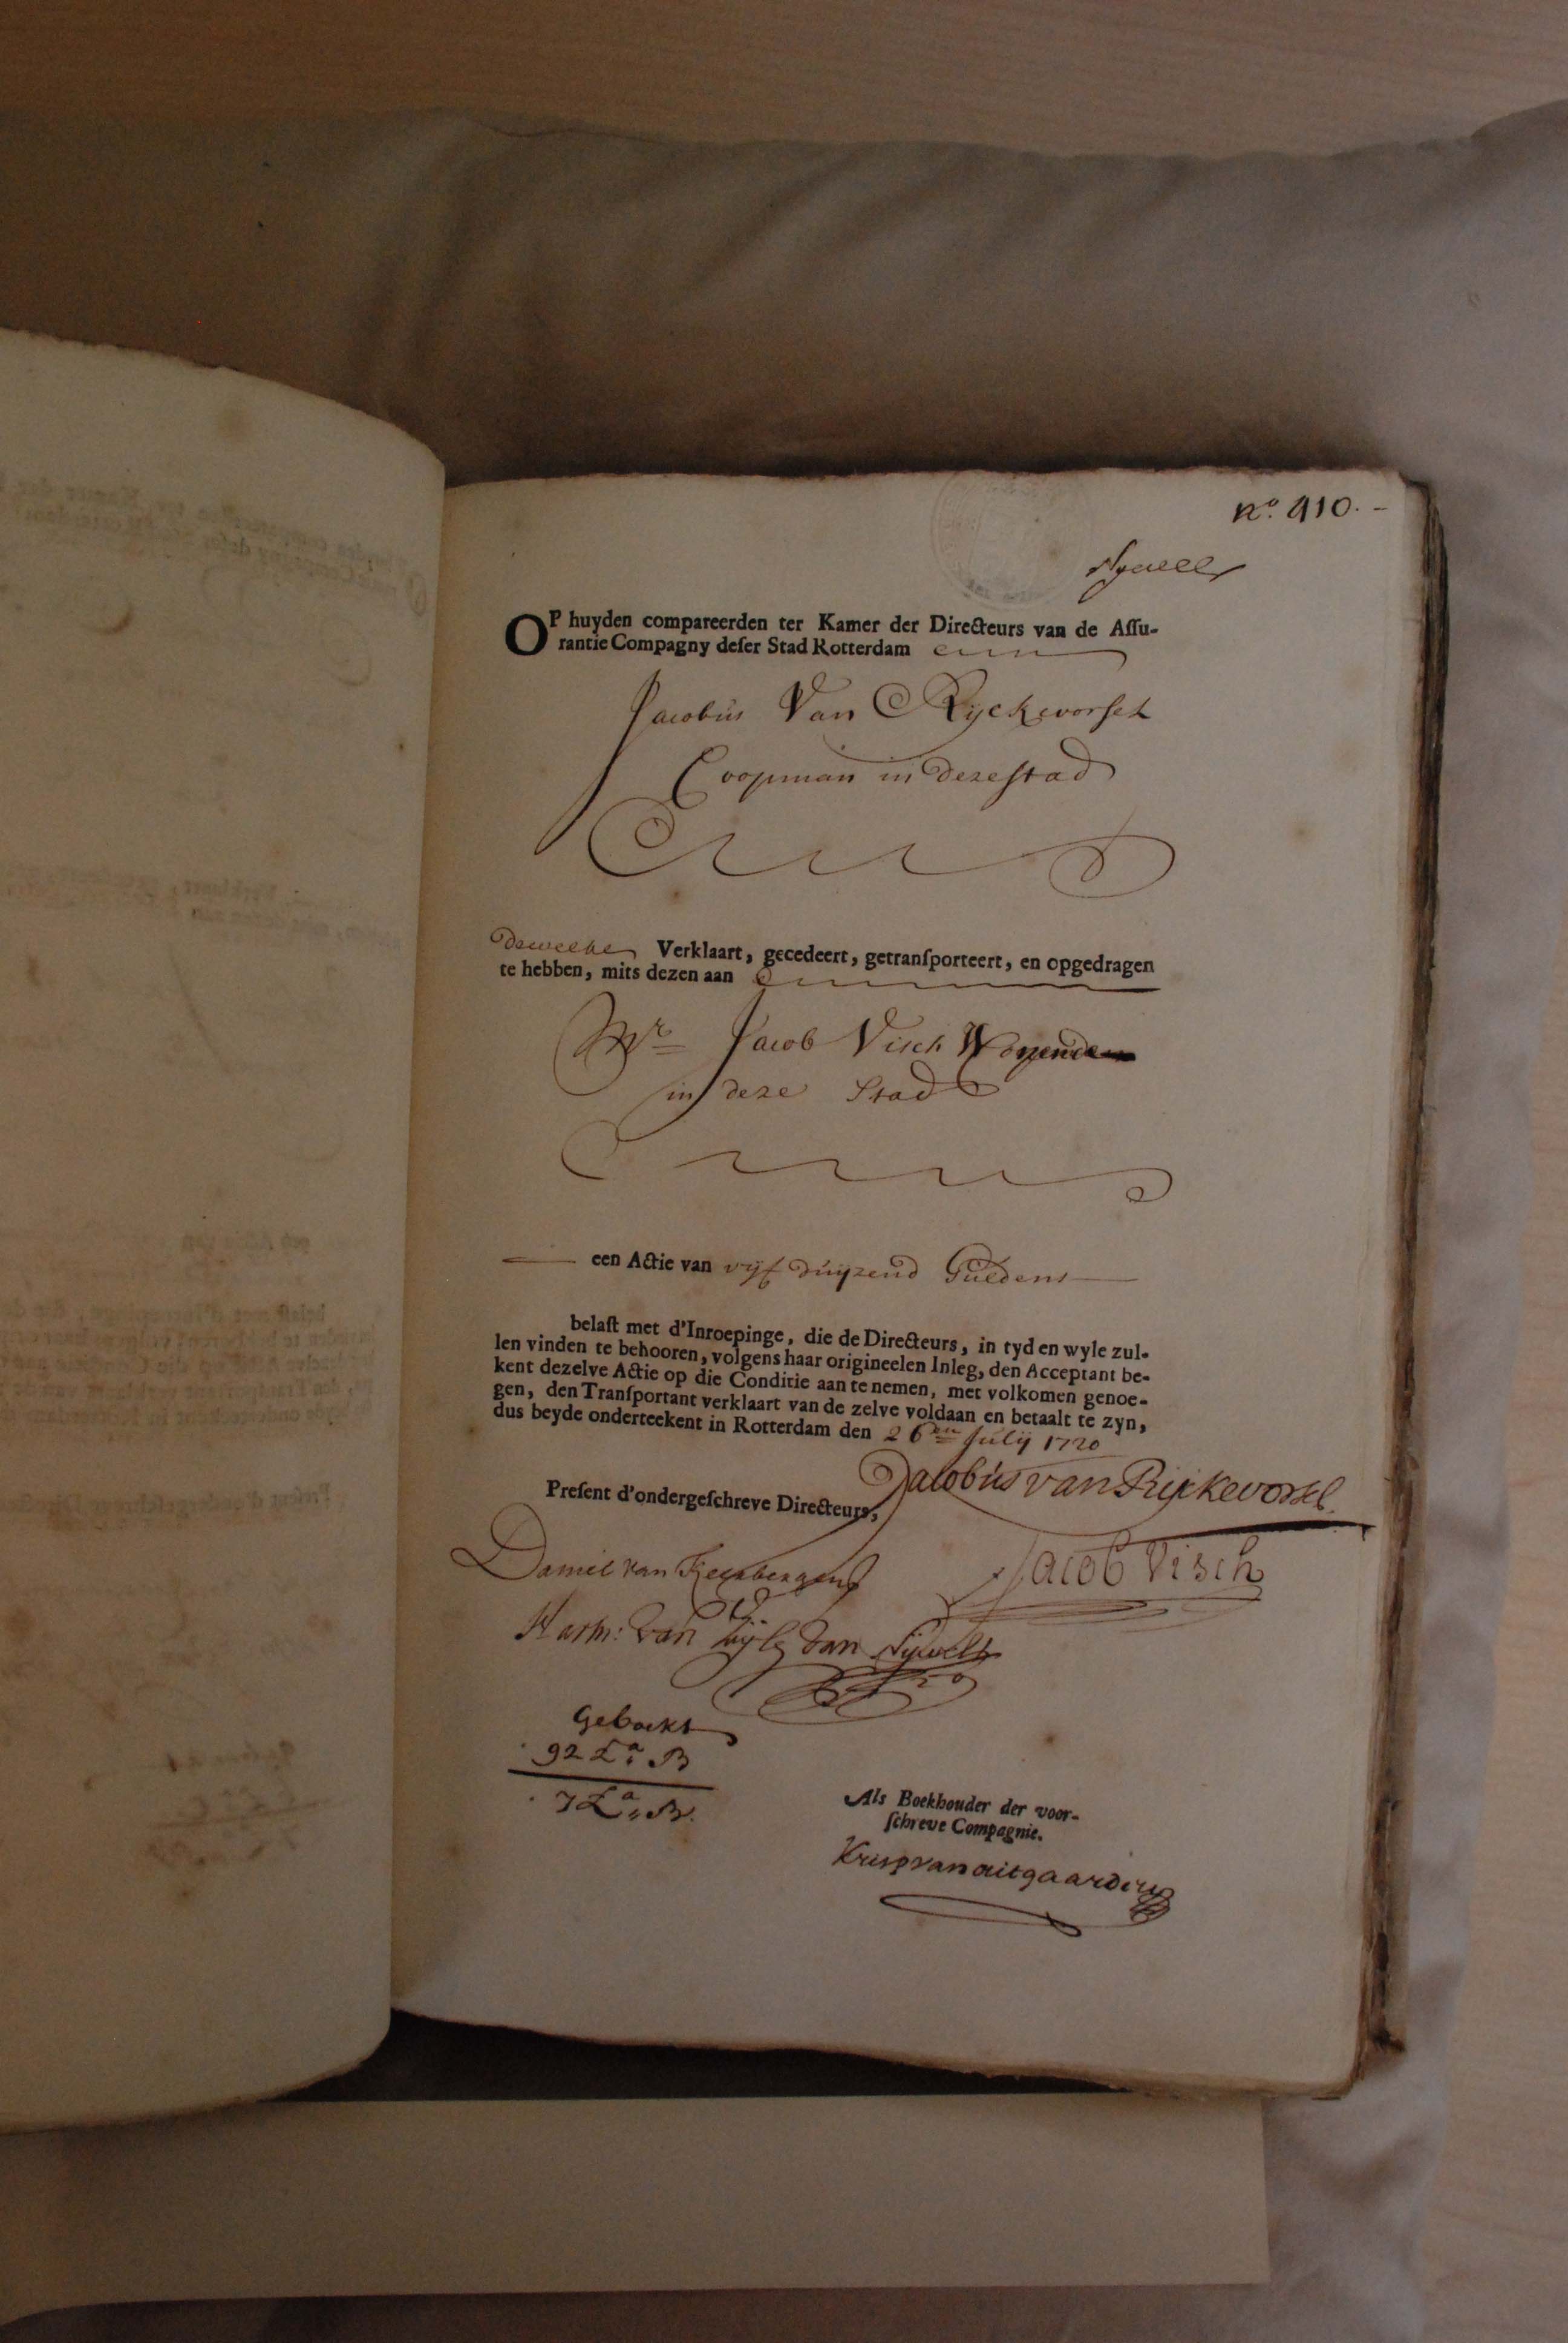 No. 910.-
Nyvelt
OP huyden compareerden ter Kamer der Directeurs van de Assu-
rantie Compagny deser Stad Rotterdam
Jacobus Van Rijckevorsel
Coopman in deze stad
dewelke Verklaart, gecedeert, getransporteert, en opgedragen
te hebben, mits dezen aan
Mr Jacob Visch Wonende
in deze Stad
een Actie van vijf duijzend Guldens
belast met d'Inroepinge, die de Directeurs, in tyd en wyle zul-
len vinden te behooren, volgens haar origineelen Inleg, den Acceptant be-
kent dezelve Actie op die Conditie aan te nemen, met volkomen genoe-
gen, den Transportant verklaart van de zelve voldaan en betaalt te zyn,
dus beyde onderteekent in Rotterdam den 26en Julij 1720
Jacobus van Rijckevorsel
Present d'ondergeschreve Directeurs,
Jacob Visch
Daniel van
Harm: Van Zijle Van Nijvelt
Geboekt
92 La. B
7 La. B.
Als Boekhouder der voor-
schreve Compagnie.